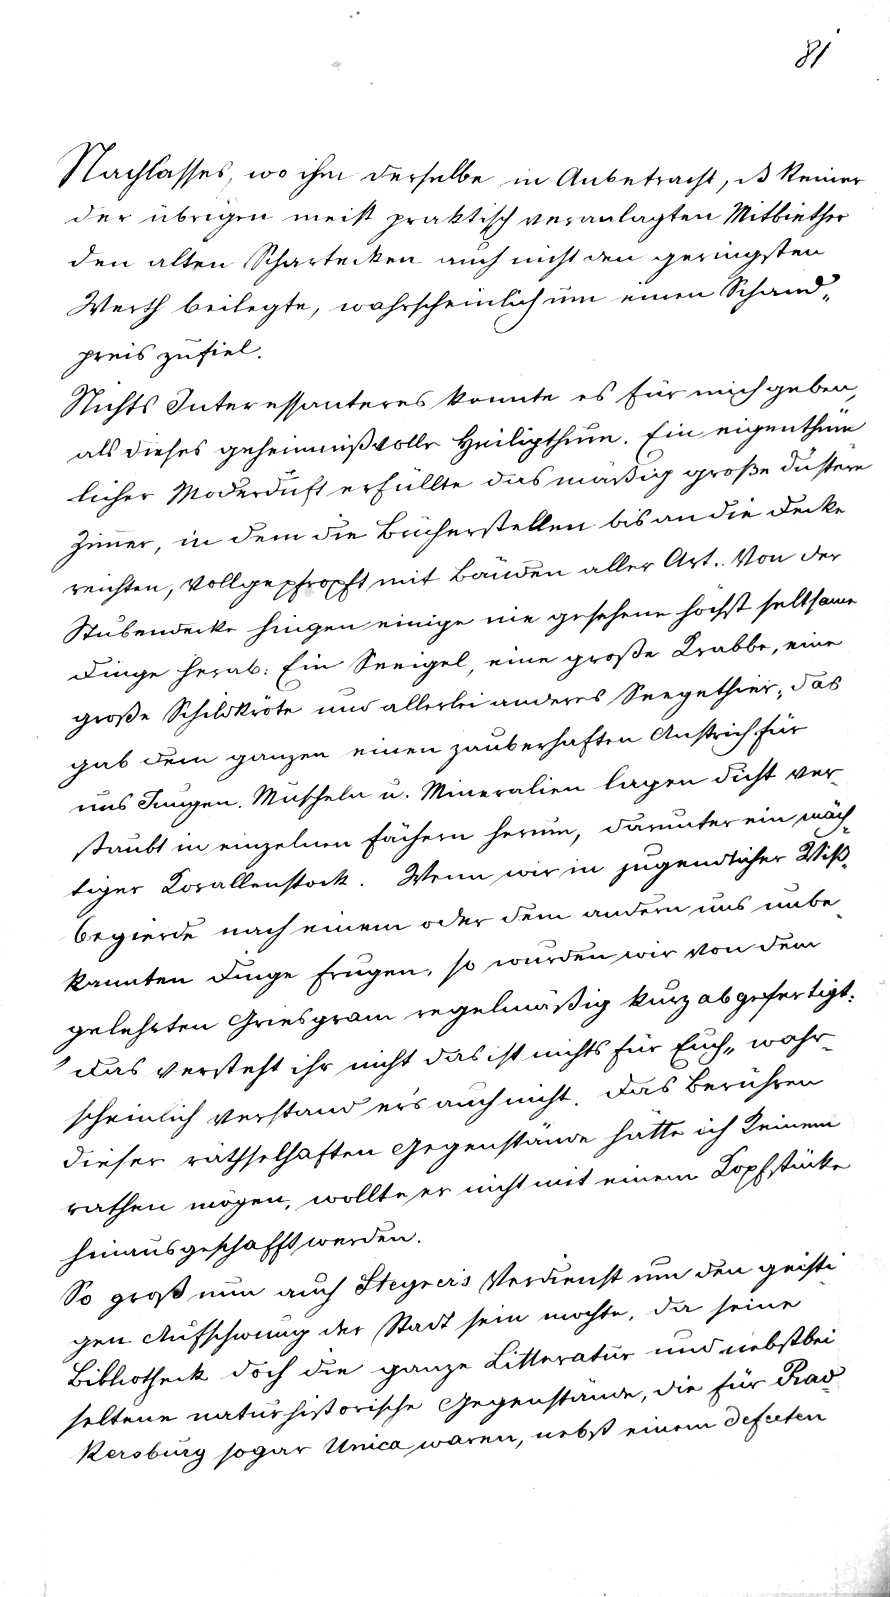 81
Nachlasses, wo ihm derselbe in Anbetracht, dß keiner
der übrigen meist praktisch veranlagten Mitbiether
den alten Scharteken auch nicht den geringsten
Werth beilegte, wahrscheinlich um einen Schand„
preis zufiel.
Nichts Interessanteres konnte es für mich geben,
als dieses geheimnißvolle Heiligthum. Ein eigenthüm
licher Moderduft erfüllte das mäßig große düstere
Zimer, in dem die Bücherstellen bis an die Decke
reichten, vollgepfropft mit Bänden aller Art. Von der
Stubendecke hingen einige nie gesehene höchst seltsame
Dinge herab: Ein Seeigel, eine große Krabbe, eine
große Schildkröte und allerlei anderes Seegethier, das
gab dem ganzen einen zauberhaften Anstrich für
uns Jungen. Muscheln u. Mineralien lagen dicht ver-
staubt in einzelnen Fächern herum, darunter ein mäch-
tiger Korallenstock. Wenn wir in jugendlicher Wiß-
begierde nach einem oder dem andern uns unbe-
kannten Dinge frugen, so wurden wir von dem
gelehrten Griesgram regelmäßig kurz abgefertigt:
„Das versteht ihr nicht das ist nichts für Euch„ wahr-
scheinlich verstand er's auch nicht. Das Berühren
dieser räthselhaften Gegenstände hätte ich Keinem
rathen mögen, wollte er nicht mit einem Kopfstücke
hinausgeschafft werden.
So groß nun auch Steyrer's Verdienst um den geisti
gen Aufschwung der Stadt sein mochte, da seine
Bibliotheck doch die ganze Litteratur und nebstbei
seltene naturhistorische Gegenstände, die für Rad
kersburg sogar Unica waren, nebst einem defecten